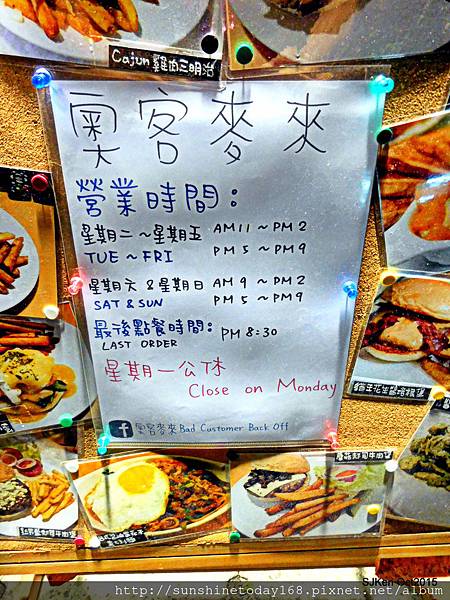 Cajun 雞肉三明治
奧客麥來
營業時間:
星期二~星期五 AM11~PM2
TUE~FRI PM5~PM9
星期六&星期日 AM9~PM2
SAT & SUN PM5~PM9
最後點餐時間: PM 8:30
LAST ORDER
星期一公休
Close on Monday
f 奧客麥來 Bad Customer Back Off
SJKen Oct 2015
http://sunshinetoday168.pixnet.net/album